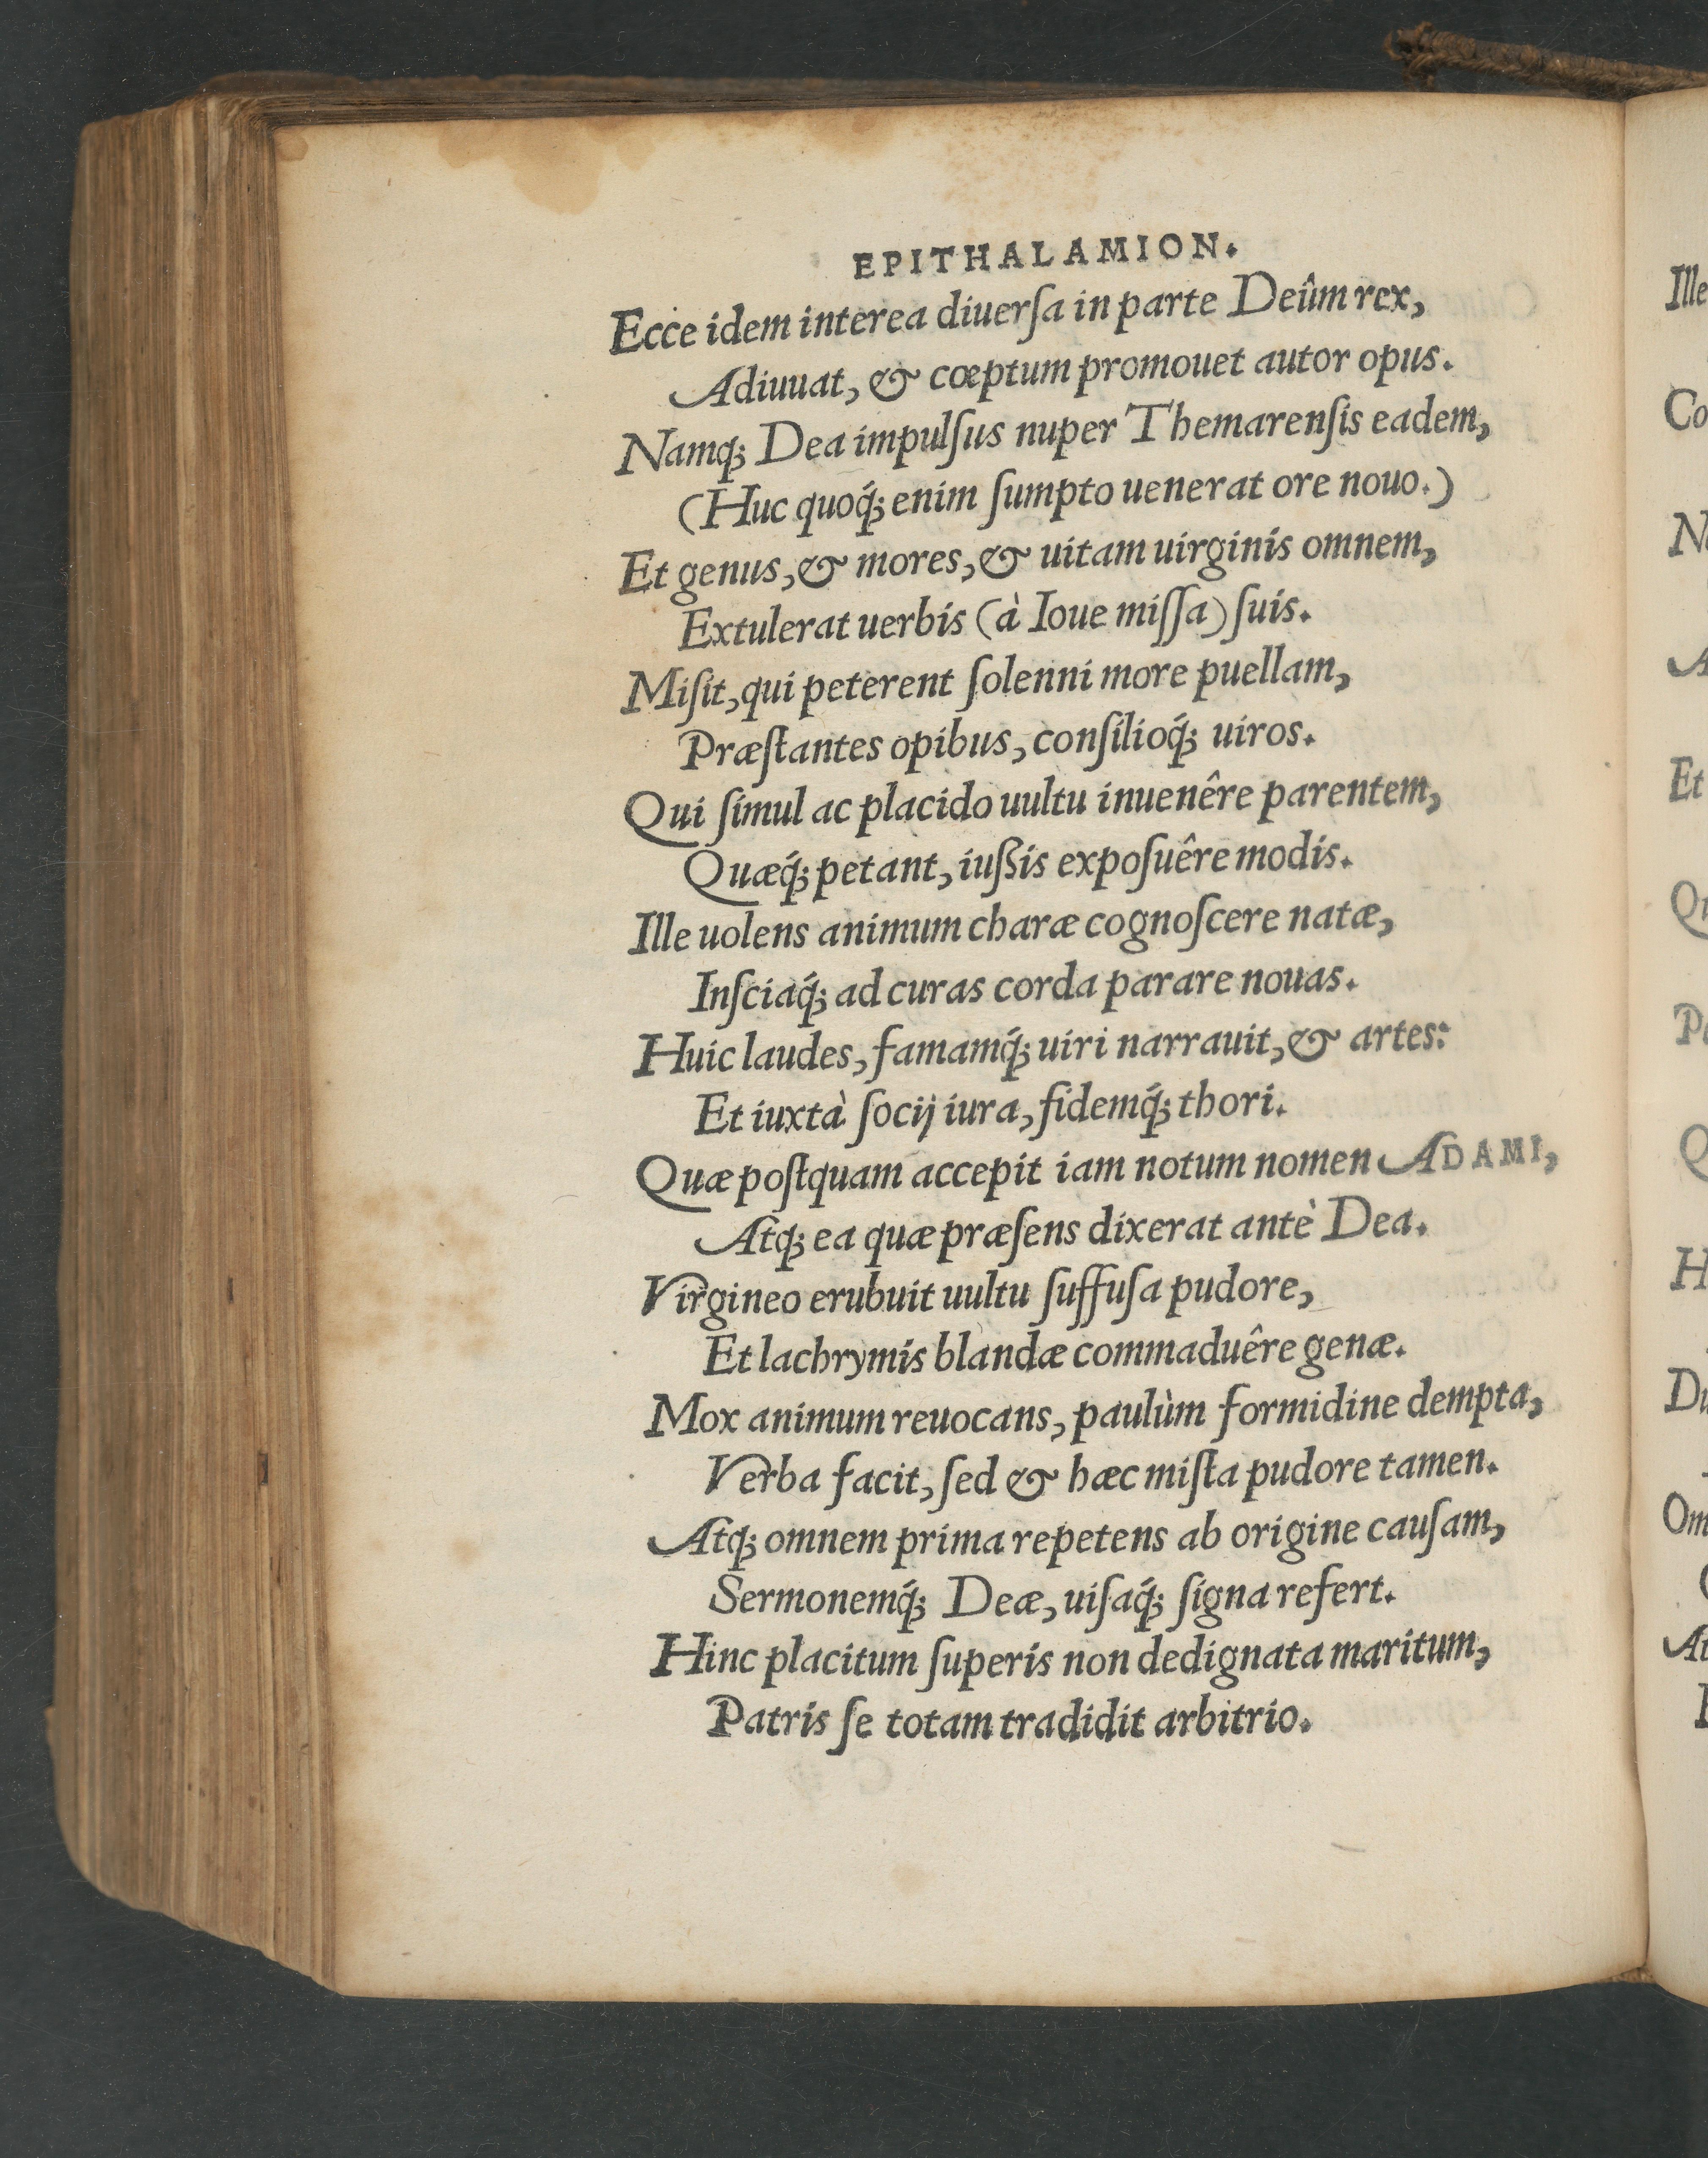 EPITHALAMION.
Ecce idem interea diuerſa in parte Deûm rex,
Adiuuat, & cœptum promouet autor opus.
Namq; Dea impulſus nuper Themarenſis eadem,
(Huc quoq́; enim ſumpto uenerat ore nouo.)
Et genus, & mores, & uitam uirginis omnem,
Extulerat uerbis (à Ioue miſſa) ſuis.
Miſit, qui peterent ſolenni more puellam,
Præſtantes opibus, conſilioq́; uiros.
Qui ſimul ac placido uultu inuenêre parentem,
Quæq́; petant, iußis expoſuêre modis.
Ille uolens animum charæ cognoſcere natæ,
Inſciaq́; ad curas corda parare nouas.
Huic laudes, famamq́; uiri narrauit, & artes:
Et iuxtà ſocij iura, fidemq́; thori.
Quæ poſtquam accepit iam notum nomen ADAMI,
Atq; ea quæ præſens dixerat antè Dea.
Virgineo erubuit uultu ſuffuſa pudore,
Et lachrymis blandæ commaduêre genæ.
Mox animum reuocans, paulùm formidine dempta,
Verba facit, ſed & hæc miſta pudore tamen.
Atq; omnem prima repetens ab origine cauſam,
Sermonemq́; Deæ, uiſaq́; ſigna refert.
Hinc placitum ſuperis non dedignata maritum,
Patris ſe totam tradidit arbitrio.
Ille
Co
Et